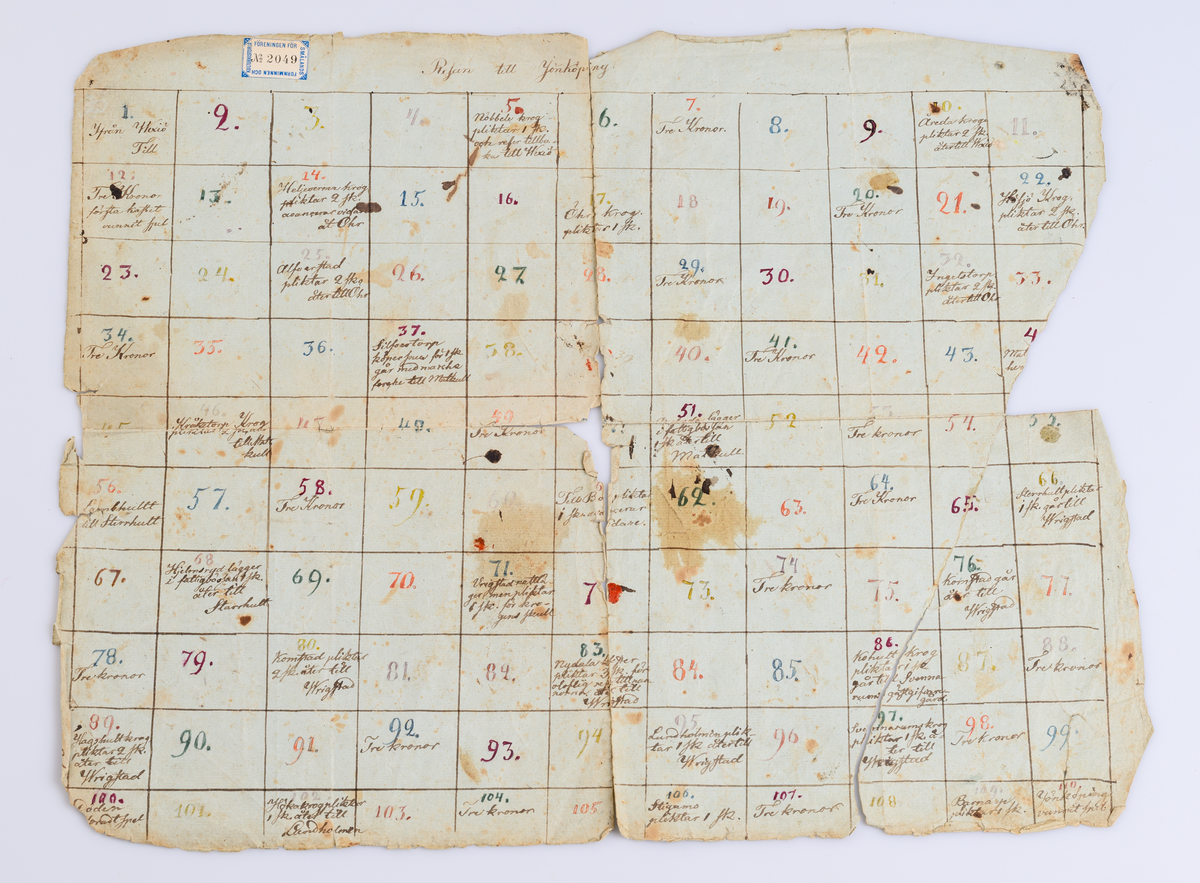 FÖRENINGEN FÖR
SMÅLANDS
FORNMINNEN OCH
№ 2049
Resan till Jönköping
1.
Ifrån Wexiö
Till
2.
3.
4.
5.
Nöbbele krog
pliktar 1 sk.
och reser tillba-
ka till Wexiö
6.
7.
Tre Kronor.
8.
9.
10.
Areda krog
pliktar 2 sk.
åter till Wexiö
11.
12.
Tre Krono
första kastet
vunnit spel
13.
14.
krog
pliktar 2 sk.
avancerar vidare
åt Öhr
15.
16.
7.
Öhr krog.
pliktar 1 sk.
18
19.
20.
Tre Kronor
21.
22.
Krog.
pliktar 2 sk.
åter till Öhr.
23.
24.
25.
Alfverstad
pliktar 2 sk
åter till Öhr
26.
27
28.
29.
Tre Kronor
30.
31.
32.
Ingelstorp
pliktar 2 sk.
åter till Öhr
33.
34.
Tre Kronor
35.
36.
37.
för 1 sk
går med
till Matkull
38.
40.
41.
Tre Kronor
42.
43.
4
Mat
46.
Kråkstorp Krog
pliktar 2
till Mat
kull
49.
Tre Kronor
51.
lägger
i fattigbössan
1 sk åter till
Matkull
52
53
Tre kronor
54.
56.
Lambhultt
till Sterrhult
57.
58.
Tre Kronor
59.
60.
plikta
1 sk.
62.
63.
64.
Tre Kronor
65.
66.
Sterrhult pliktar
1 sk. går till
Wrigstad
67.
68
Hjelmsryd lägger
i fattigbössan 1 sk.
åter till
Starrhult
69.
70.
71.
pliktar
6 sk. för kro-
gens skull
7
73.
74
Tre kronor
75.
76.
Komstad går
åter till
Wrigstad
77.
78.
Tre kronor
79.
80.
Komstad pliktar
2 sk. åter till
Wrigstad
81.
82.
83.
Nydala
pliktar 3 sk. för
till
Wrigstad
84.
85.
86.
Kohult krog
pliktar 1 sk
går till Svenna
rums gästgifvare
gård
87.
88.
Tre kronor
89.
Hagshult krog
pliktar 2 sk.
åter till
Wrigstad
90.
91.
92.
Tre kronor
93.
94
95.
Lundholmen plik-
tar 1 sk åter till
Wrigstad
96
97.
Svennarums krog
pliktar 1 sk å-
ter till
Wrigstad
98.
Tre kronor
99.
100.
Döden
spel
101.
102.
krog pliktar
1 sk. åter till
Lundholmen
103.
104.
Tre kronor
105
106.
Stigamo
pliktar 1 sk.
107.
Tre kronor
108
109.
Barnarps
pliktar 1 sk.
110.
Jönköping
vunnit spel